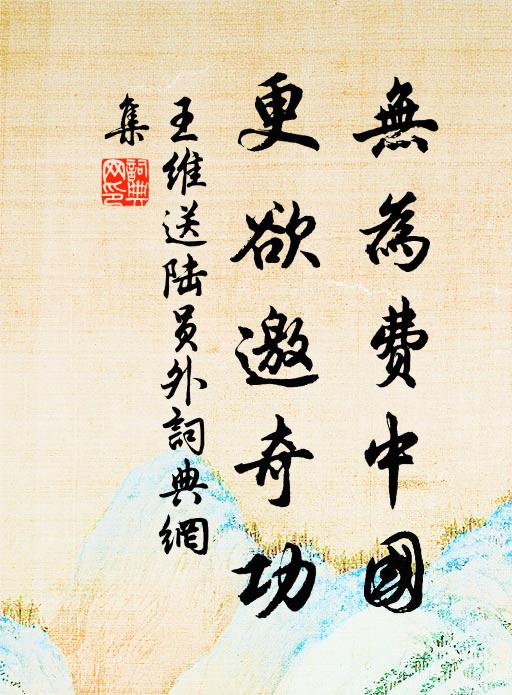 無為費中國
更欲邀奇功
王維送陆员外詞典網
集
詞典网印